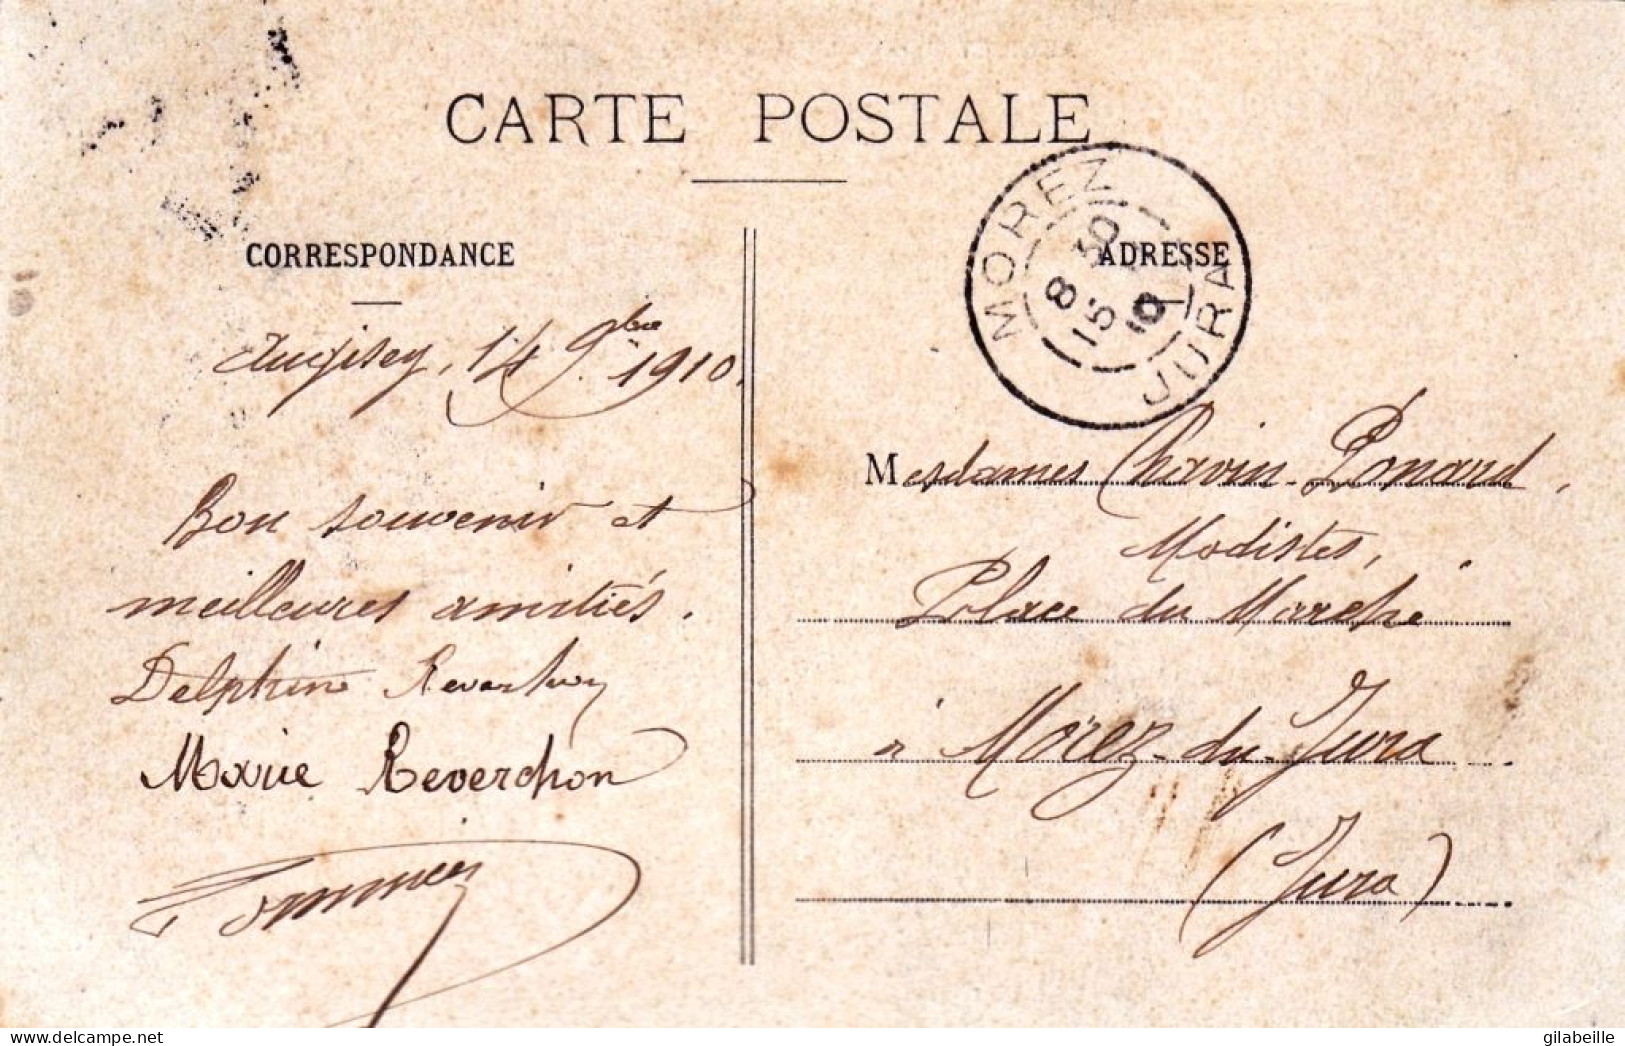 CARTE POSTALE
CORRESPONDANCE
14 9bre 1910.
Bon souvenir et
meilleures amitiés.
Delphine Reverchon
Marie Reverchon
MOREZ
8 30
15
10
JURA
ADRESSE
Mesdames Chavin-Ponard,
Modistes,
Place du Marché
à Morez-du-Jura
(Jura)
www.delcampe.net
gilabeille